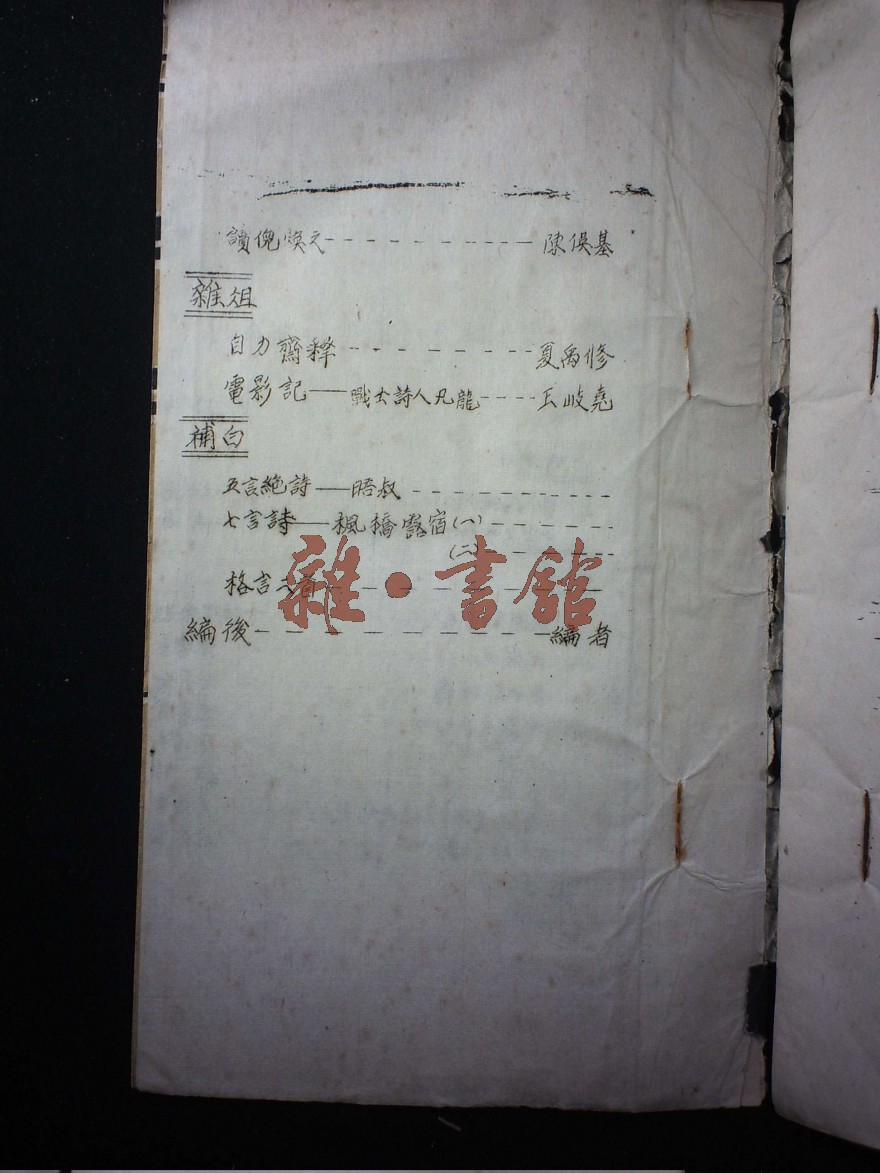 讀倪煥之------------陳俁基
雜俎
自力齋釋---------夏禹修
電影記——戰士詩人凡龍----王岐堯
補白
五言絕詩——晤叔-----------
七言詩——楓橋露宿(一)-------
(二)-------
格言六首-----------
編後------------編者
雜·書館